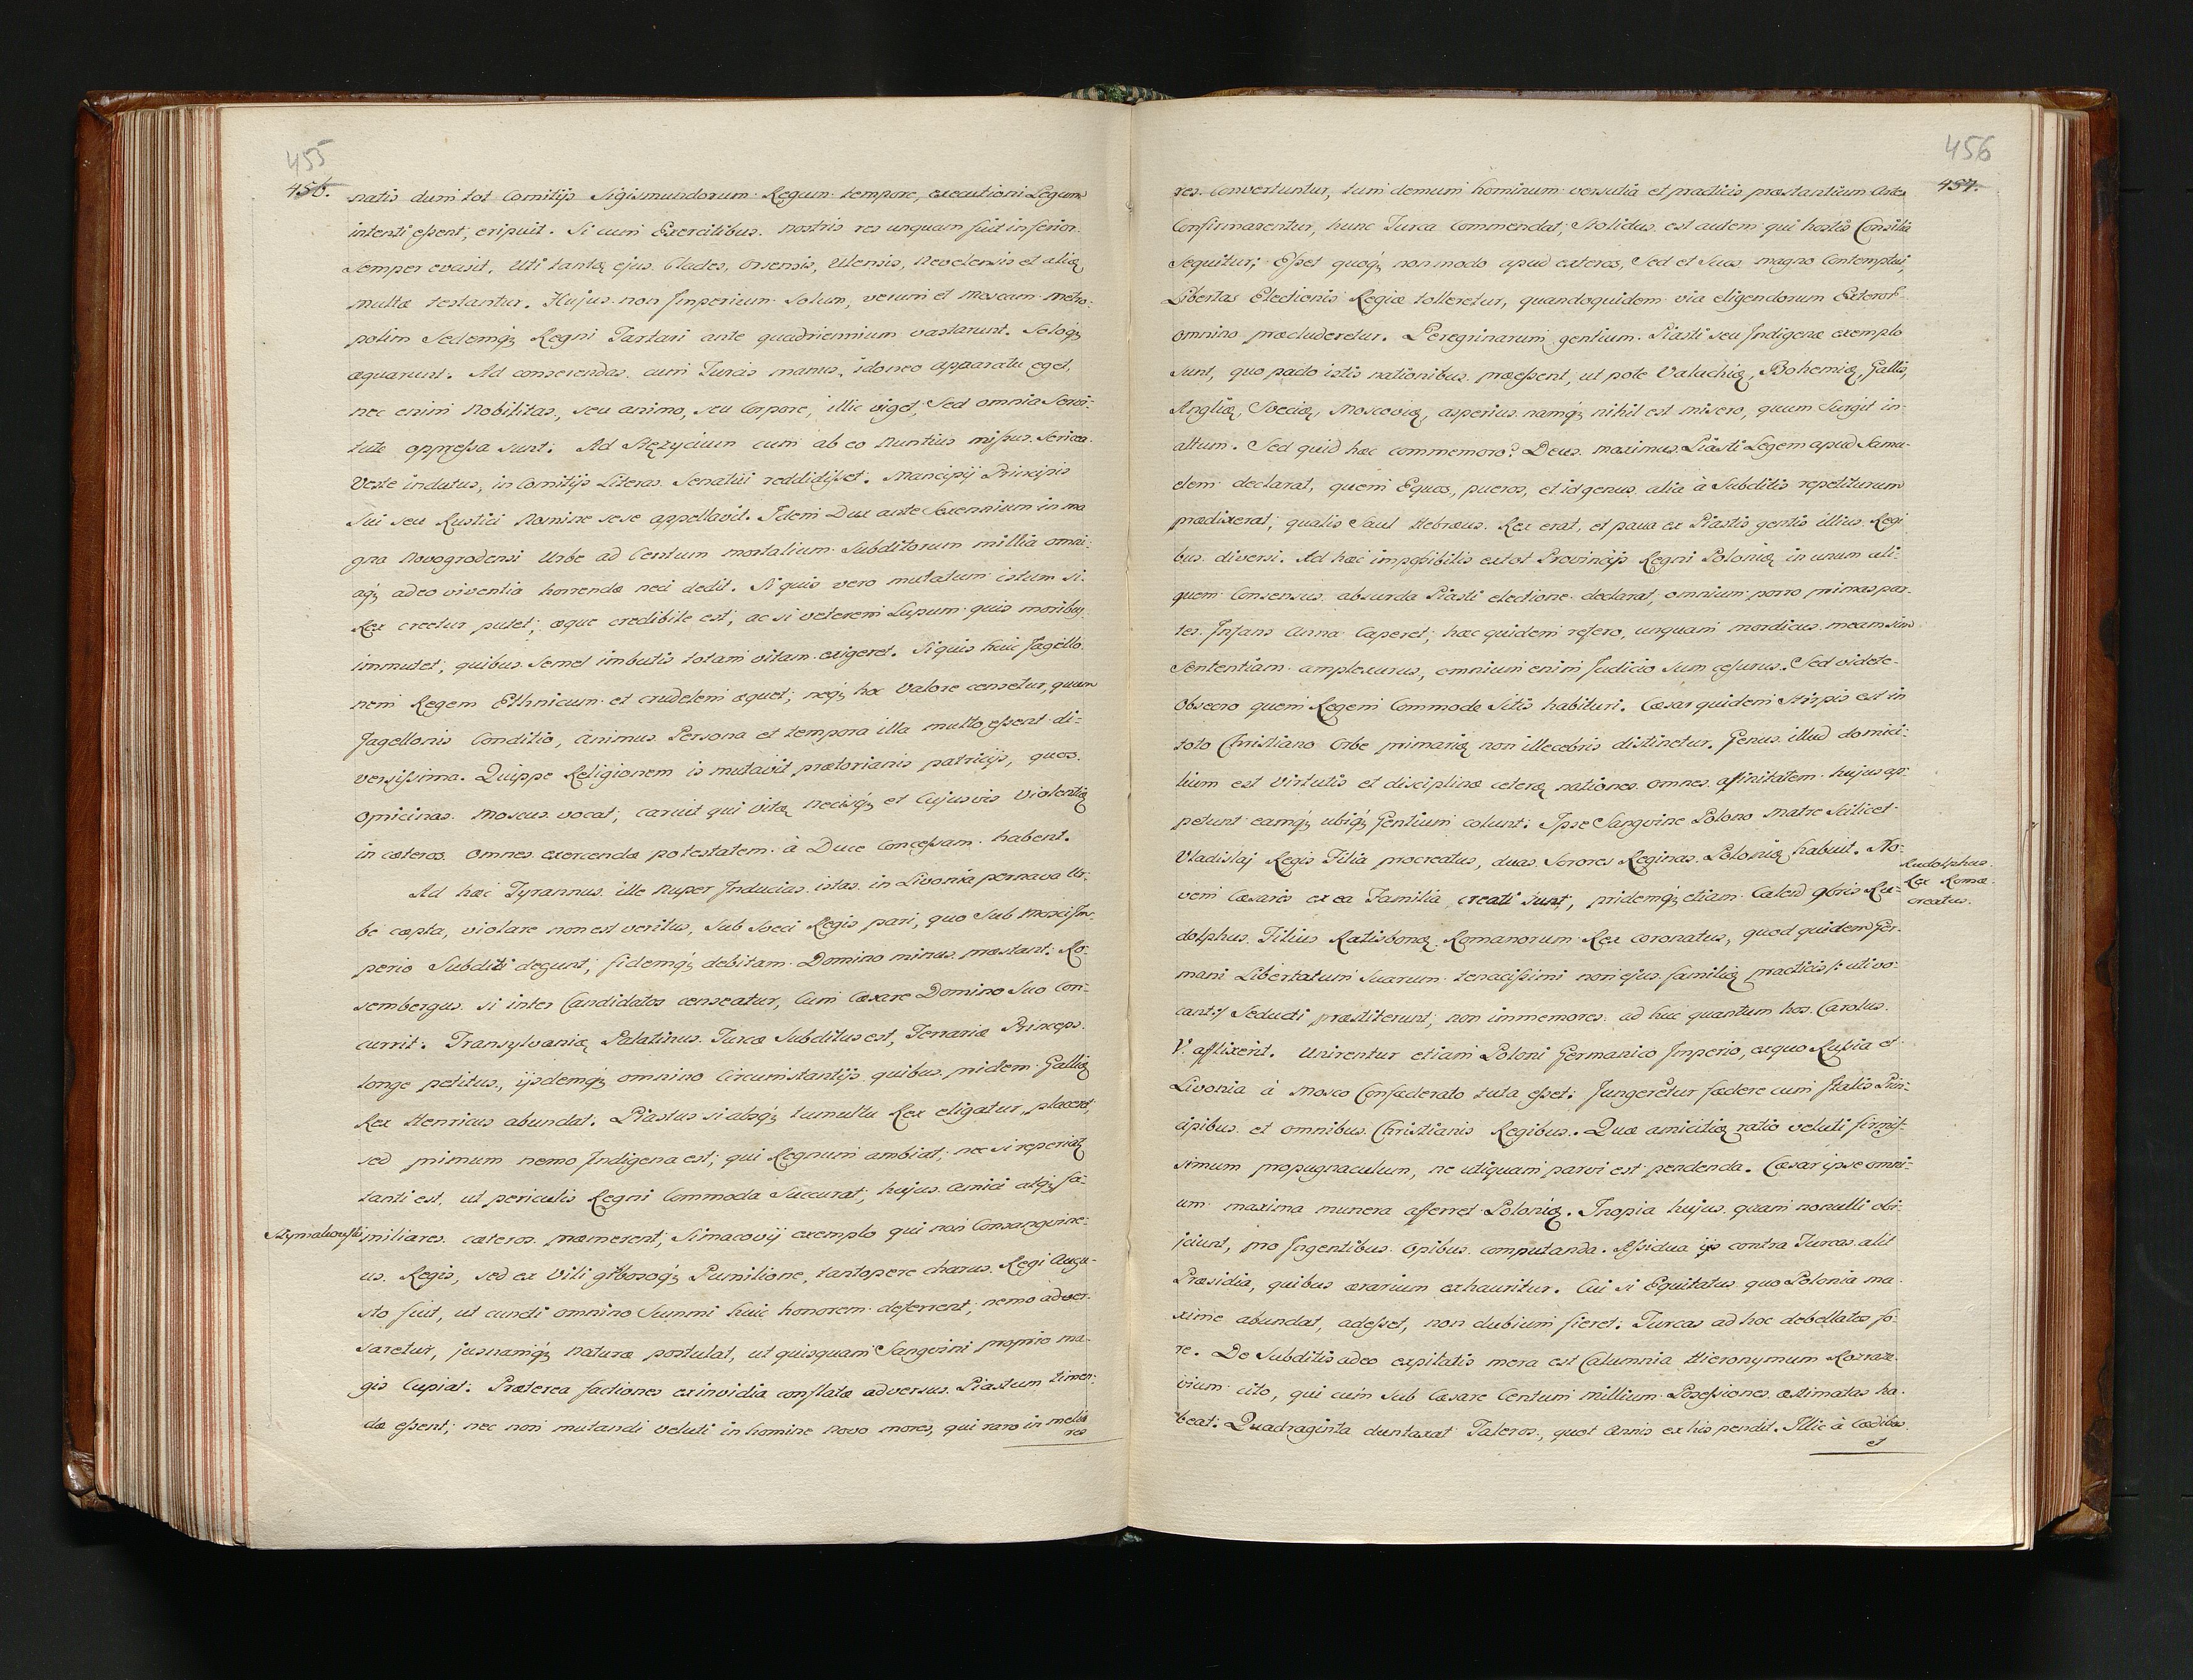 455
456.
natis dum tot Comitijs Sigismundorum Regum tempore, executioni Legum
intenti essent, eripuit. Si cum Exercitibus nostris res unquam fuit inferior
Semper evasit, Uti tantæ ejus Clades, Orsensis, Ulensis, Nevelensis et aliæ
multæ testantur. Hujus non Imperium Solum, verum et Moscam metro-
polim Sedemq; Regni Tartari ante quadriennium vastarunt. Soloq;
æquarunt. Ad conserendas cum Turcis manus, idoneo apparatu eget,
nec enim Nobilitas, seu animo, seu Corpore, illic viget, Sed omnia Servi-
tute oppressa sunt. Ad Stęzycium cum ab eo Nuntius missus Serica
Veste indutus, in Comitijs Literas Senatui reddidisset. Mancipij Principis
Sui seu Rustici Nomine sese appellavit. Idem Dux ante Sexennium in ma
gna Novogrodensi Urbe ad Centum mortalium Subditorum millia omni-
aq; adeo viventia horrendæ neci dedit. Si quis vero mutatum istum si
Rex creetur putet; æque credibile est, ac si veterem Lupum quis moribus
immutet, quibus Semel imbutis totam vitam exigeret. Si quis huic Jagello
nem Regem Ethnicum et crudelem æquet; neq; hoc Valore censetur, quum
Jagellonis Conditio, animus Persona et tempora illa multo essent di-
versissima. Quippe Religionem is mutavit prætorianis patricijs, quos
Opricinas Moscus vocat, caruit qui vitæ necisq; et Cujusvis Violentiæ
in cæteros omnes exercendæ potestatem à Duce Concessam habent.
Ad hæc Tyrannus ille Nuper Inducias istas in Livonia pernava Ur-
be cæpta, violare non est veritus, Sub Sveci Regis pari, quo Sub Mosci Im-
perio Subditi degunt, fidemq; debitam Domino minus præstant. Ro-
sembergus si inter Candidatos censeatur, Cum Cæsare Domino Suo Con-
currit. Transylvaniæ Palatinus Turcæ Subditus est, Ferrariæ Princeps
longe petitus, ijsdemq; omnino Circumstantijs quibus pridem Galliæ
Rex Henricus abundat. Piastus si absq; tumultu Rex eligatur, placeret,
sed primum nemo Indigena est, qui Regnum ambiat, nec si reperiatʒ
tanti est, ut periculis Regni Commoda Succurat, hujus amici atq; fa-
Szymakowski miliares cæteros præmerent, Simacovij exemplo qui non Consangvine-
us Regis, sed ex Vili gibbosoq; Pumilione, tantopere charus Regi Augu-
sto fuit, ut cuncti omnino Summi huic honorem deferrent, nemo adver-
saretur, jusnamq; naturæ postulat, ut quisquam Sangvini proprio ma-
gis Cupiat. Præterea factiones ex invidia conflatæ adversus Piastum timen-
dæ essent; nec non mutandi veluti in homine Novo mores, qui raro in melio
res
456
457.
res convertuntur, tum demum hominum versutia et practicis præstantium arte
Confirmarentur, hunc Turca Commendat; Stolidus est autem qui hostis Consilia
Sequitur; Esset quoq; non modo apud exteros, Sed et Suos magno Contemptui,
Libertas Electionis Regiæ tolleretur, quandoquidem via eligendorum Exteror
omnino præcluderetur. Peregrinarum gentium Piasti seu Indigenæ exemplo
sunt, quo pacto istis nationibus præessent, ut pote Valachiæ, Bohemiæ, Galliæ,
Angliæ, Sveciæ, Moscoviæ, asperius namq; nihil est misero, quum Surgit in
altum. Sed quid hæc commemoro? Deus maximus Piasti Legem apud Samu-
elem declarat, quem Equos, pueros, et id genus alia à Subditis repetiturum
prædixerat; qualis Saul Hebræus Rex erat, et paua ex Piastis gentis illius Regi
bus diversi. Ad hæc impossibilis ex tot Provincijs Regni Poloniæ in unum ali-
quem Consensus absurda Piasti electione declarat, omnium porro primas par-
tes Infans Anna Caperet; hæc quidem refero, unquam mordicus meam sim
Sententiam amplexurus, omnium enim Judicio Sum cessurus. Sed videte
Obsecro quem Regem Commode Sitis habituri. Cæsar quidem Stirpis est in
toto Christiano Orbe primariæ non illecebris distinetur. Genus illud domici-
lium est Virtutis et disciplinæ ceteræ nationes omnes affinitatem hujus ap-
petunt eamq; ubiq; Gentium colunt. Ipse Sangvine Polono Matre Scilicet
Vladislaj Regis Filia procreatus, duas Sorores Reginas Poloniæ habuit. No-
vem Cæsares ex ea Familia creati sunt, pridemq; etiam Calend 9bris Ru-
Rudolphus
Rex Romæ
creatus.
dolphus Filius Ratisbonæ Romanorum Rex coronatus, quod quidem Ger-
mani Libertatum Suarum tenacissimi non ejus familiæ practicis /: uti vo-
cant :/ Seducti præstiterunt, non immemores ad huc quantum hos Carolus
V. afflixerit. Unirentur etiam Poloni Germanico Imperio, ex quo Russia et
Livonia à Mosco Confæderato tuta esset. Jungeretur fædere cum Italis Prin-
cipibus et omnibus Christianis Regibus. Quæ amicitiæ ratio veluti firmis-
simum propugnaculum, ne utiquam parvi est pendenda. Cæsar ipse omni-
um maxima munera afferret Poloniæ. Inopia hujus quam nonulli obi-
iciunt, pro Ingentibus Opibus computanda. Assidua is contra Turcas alit
Præsidia, quibus ærarium exhauritur. Cui si Equitatus quo Polonia ma-
xime abundat, adesset, non dubium fieret. Turcas ad hoc debellatos fo-
re. De Subditis adeo expilatis mera est Calumnia Hieronymum Rozraze-
vium cito, qui cum Sub Cæsare Centum millium Possessiones æstimatas ha-
beat. Quadraginta duntaxat Taleros, quot Annis ex his pendit. Illic à Cædibus
et